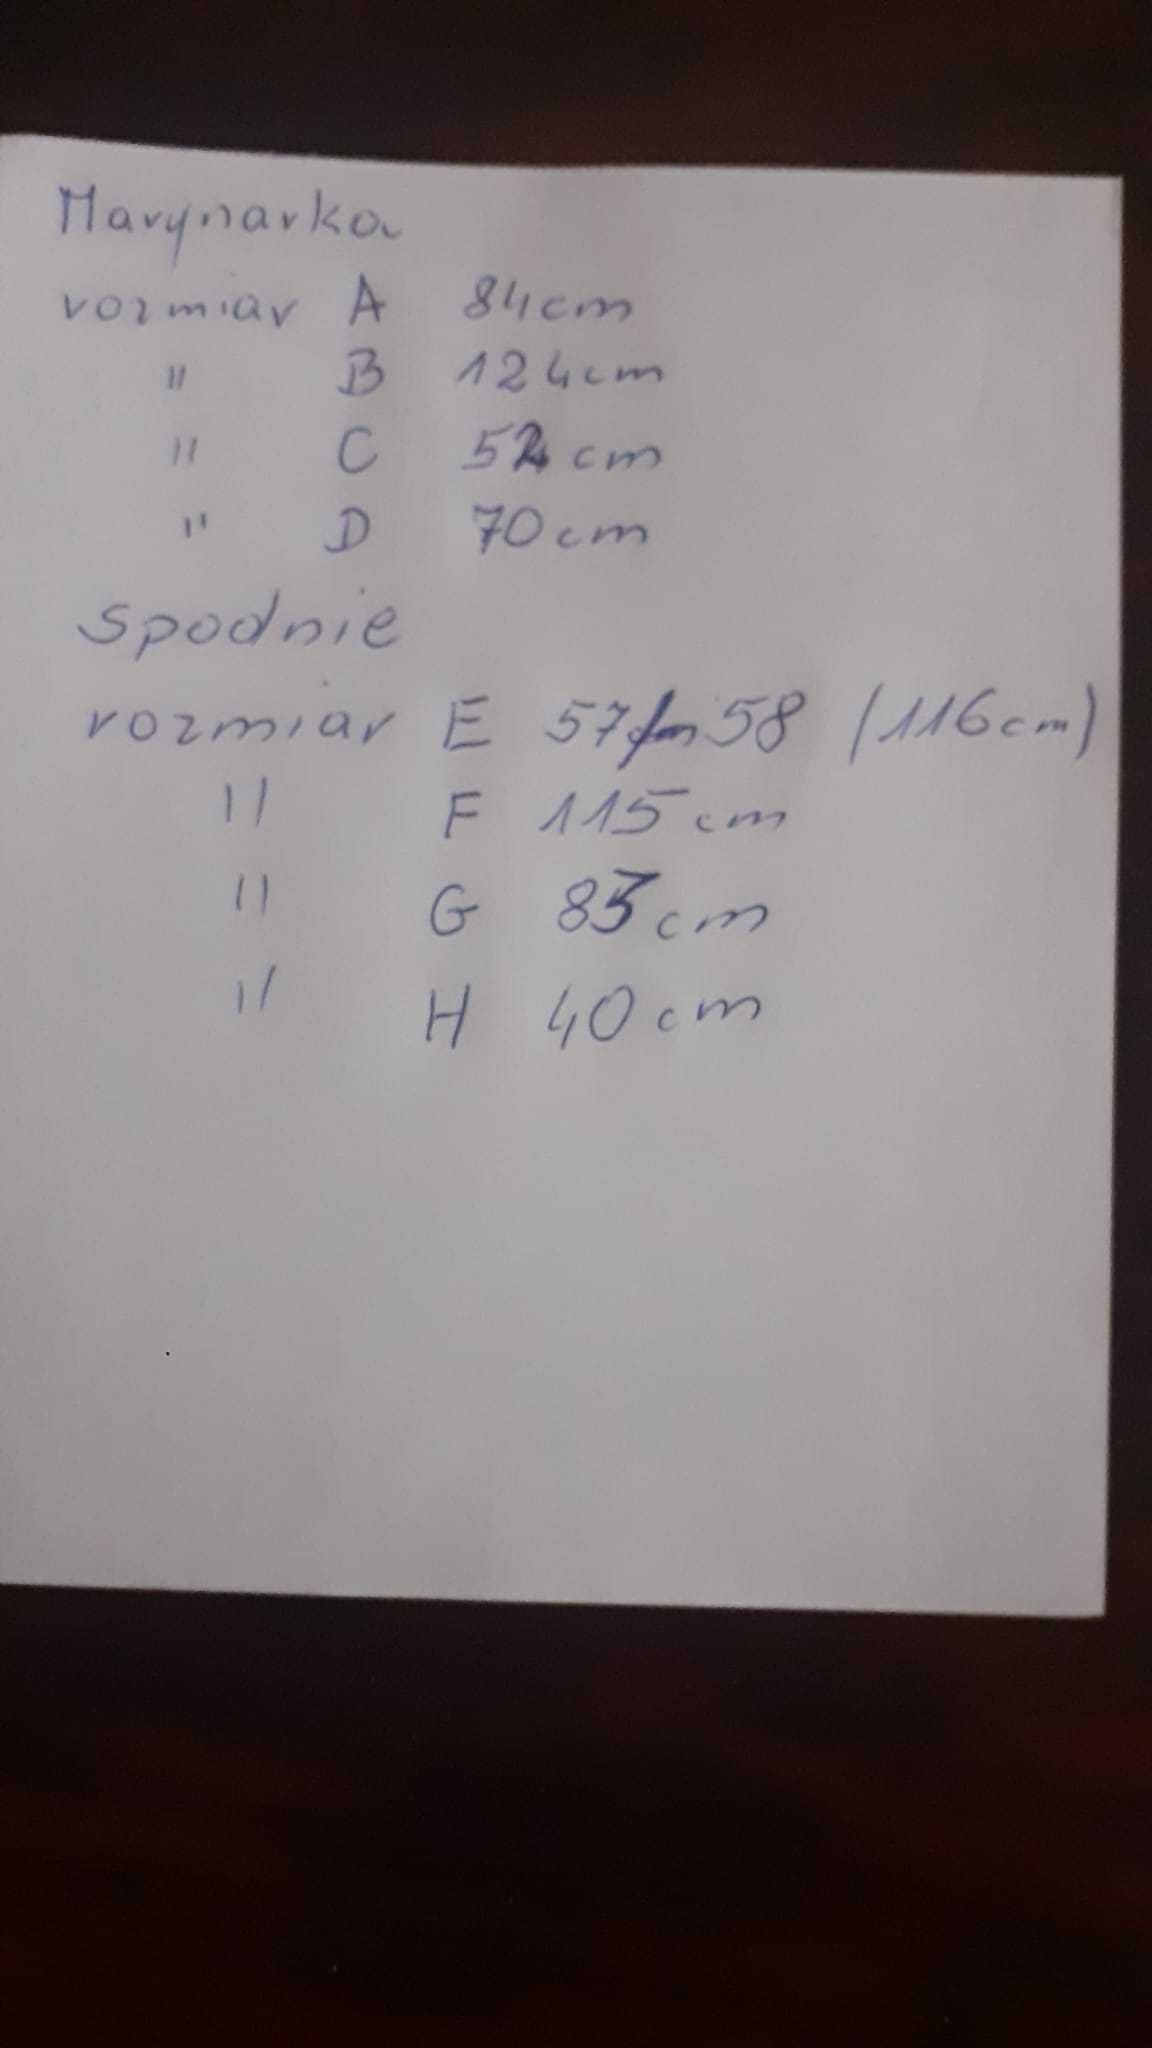 Marynarka
rozmiar A 84cm
" B 124cm
" C cm
" D 70cm
Spodnie
rozmiar E 57/58 (116cm)
" F 115cm
" G cm
" H 40cm